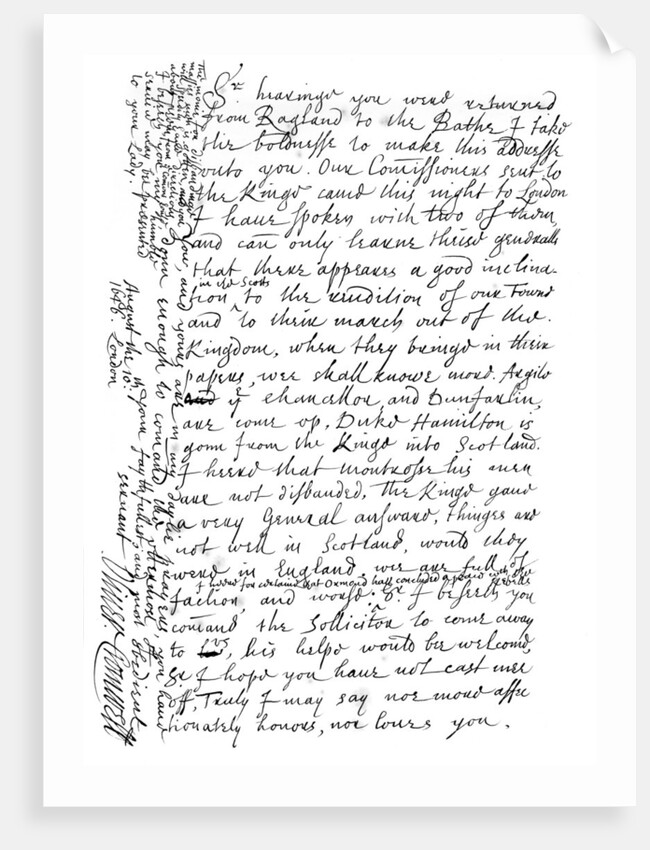 Sr. hearinge you were returned
from Ragland to the Bathe I take
the boldnesse to make this addresse
unto you. Our Comissioners sent to
the Kinge came this night to London
I have spoken with two of them,
and can only learne theise generalls
that there appeares a good inclina-
in the Scotts
tion ^ to the rendition of our Towns
and ^ to their march out of the.
Kingdom, when they bringe in their
papers, wee shall knowe more. Argile
and ye Chancellor, and Dunfarlin,
are come up. Duke Hamilton is
gonn from the Kinge into Scotland.
I heere that montrose his men
are not disbanded, The Kinge gave
a very General answare, thinges are
not well in Scotland, would they
were in England, wee are full of
I heere for certaine that Ormond hath concluded a peace with the rebells
faction, and worse. Sr I beseech you
comand the Sollicitor to come away
to us, his helpe would bee welcome,
Sr I hope you have not cast mee
off, Truly I may say noe more affec
tionately honors, nor loves you.
You, and yours are in my daylie prayers, you have
donn enough to comand the uttermost of
your faythfullest, and most obedient
servant
Oliver Cromwell
August the 10th.
1646. London
I beseech you my humble
service may be presented
to your Lady.
The monie for disbandinge